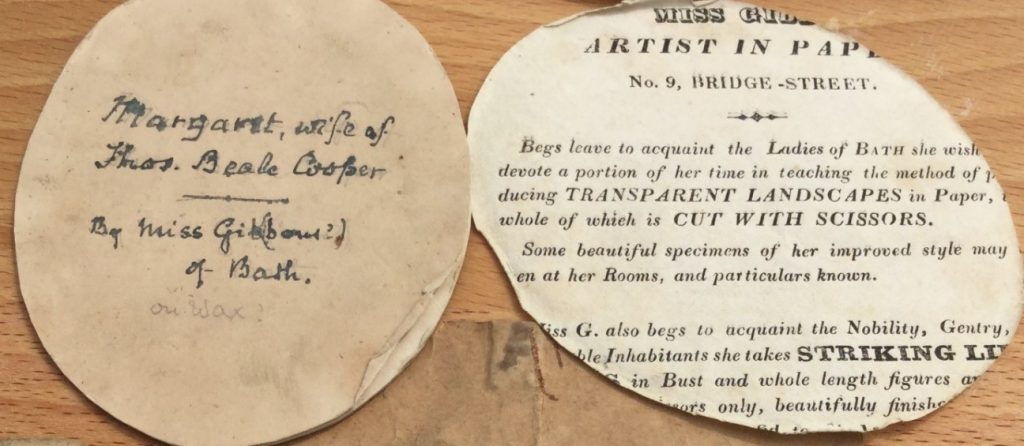 Margaret, wife of
Thos. Beale Cooper
By Miss Gib(bons?)
of Bath.
on Wax?
MISS GIB
ARTIST IN PAP
No. 9, BRIDGE-STREET.
Begs leave to acquaint the Ladies of BATH she wish
devote a portion of her time in teaching the method of p
ducing TRANSPARENT LANDSCAPES in Paper,
whole of which is CUT WITH SCISSORS.
Some beautiful specimens of her improved style may
en at her Rooms, and particulars known.
iss G. also begs to acquaint the Nobility, Gentry,
ble Inhabitants she takes STRIKING LI
G in Bust and whole length figures
ors only, beautifully finishe